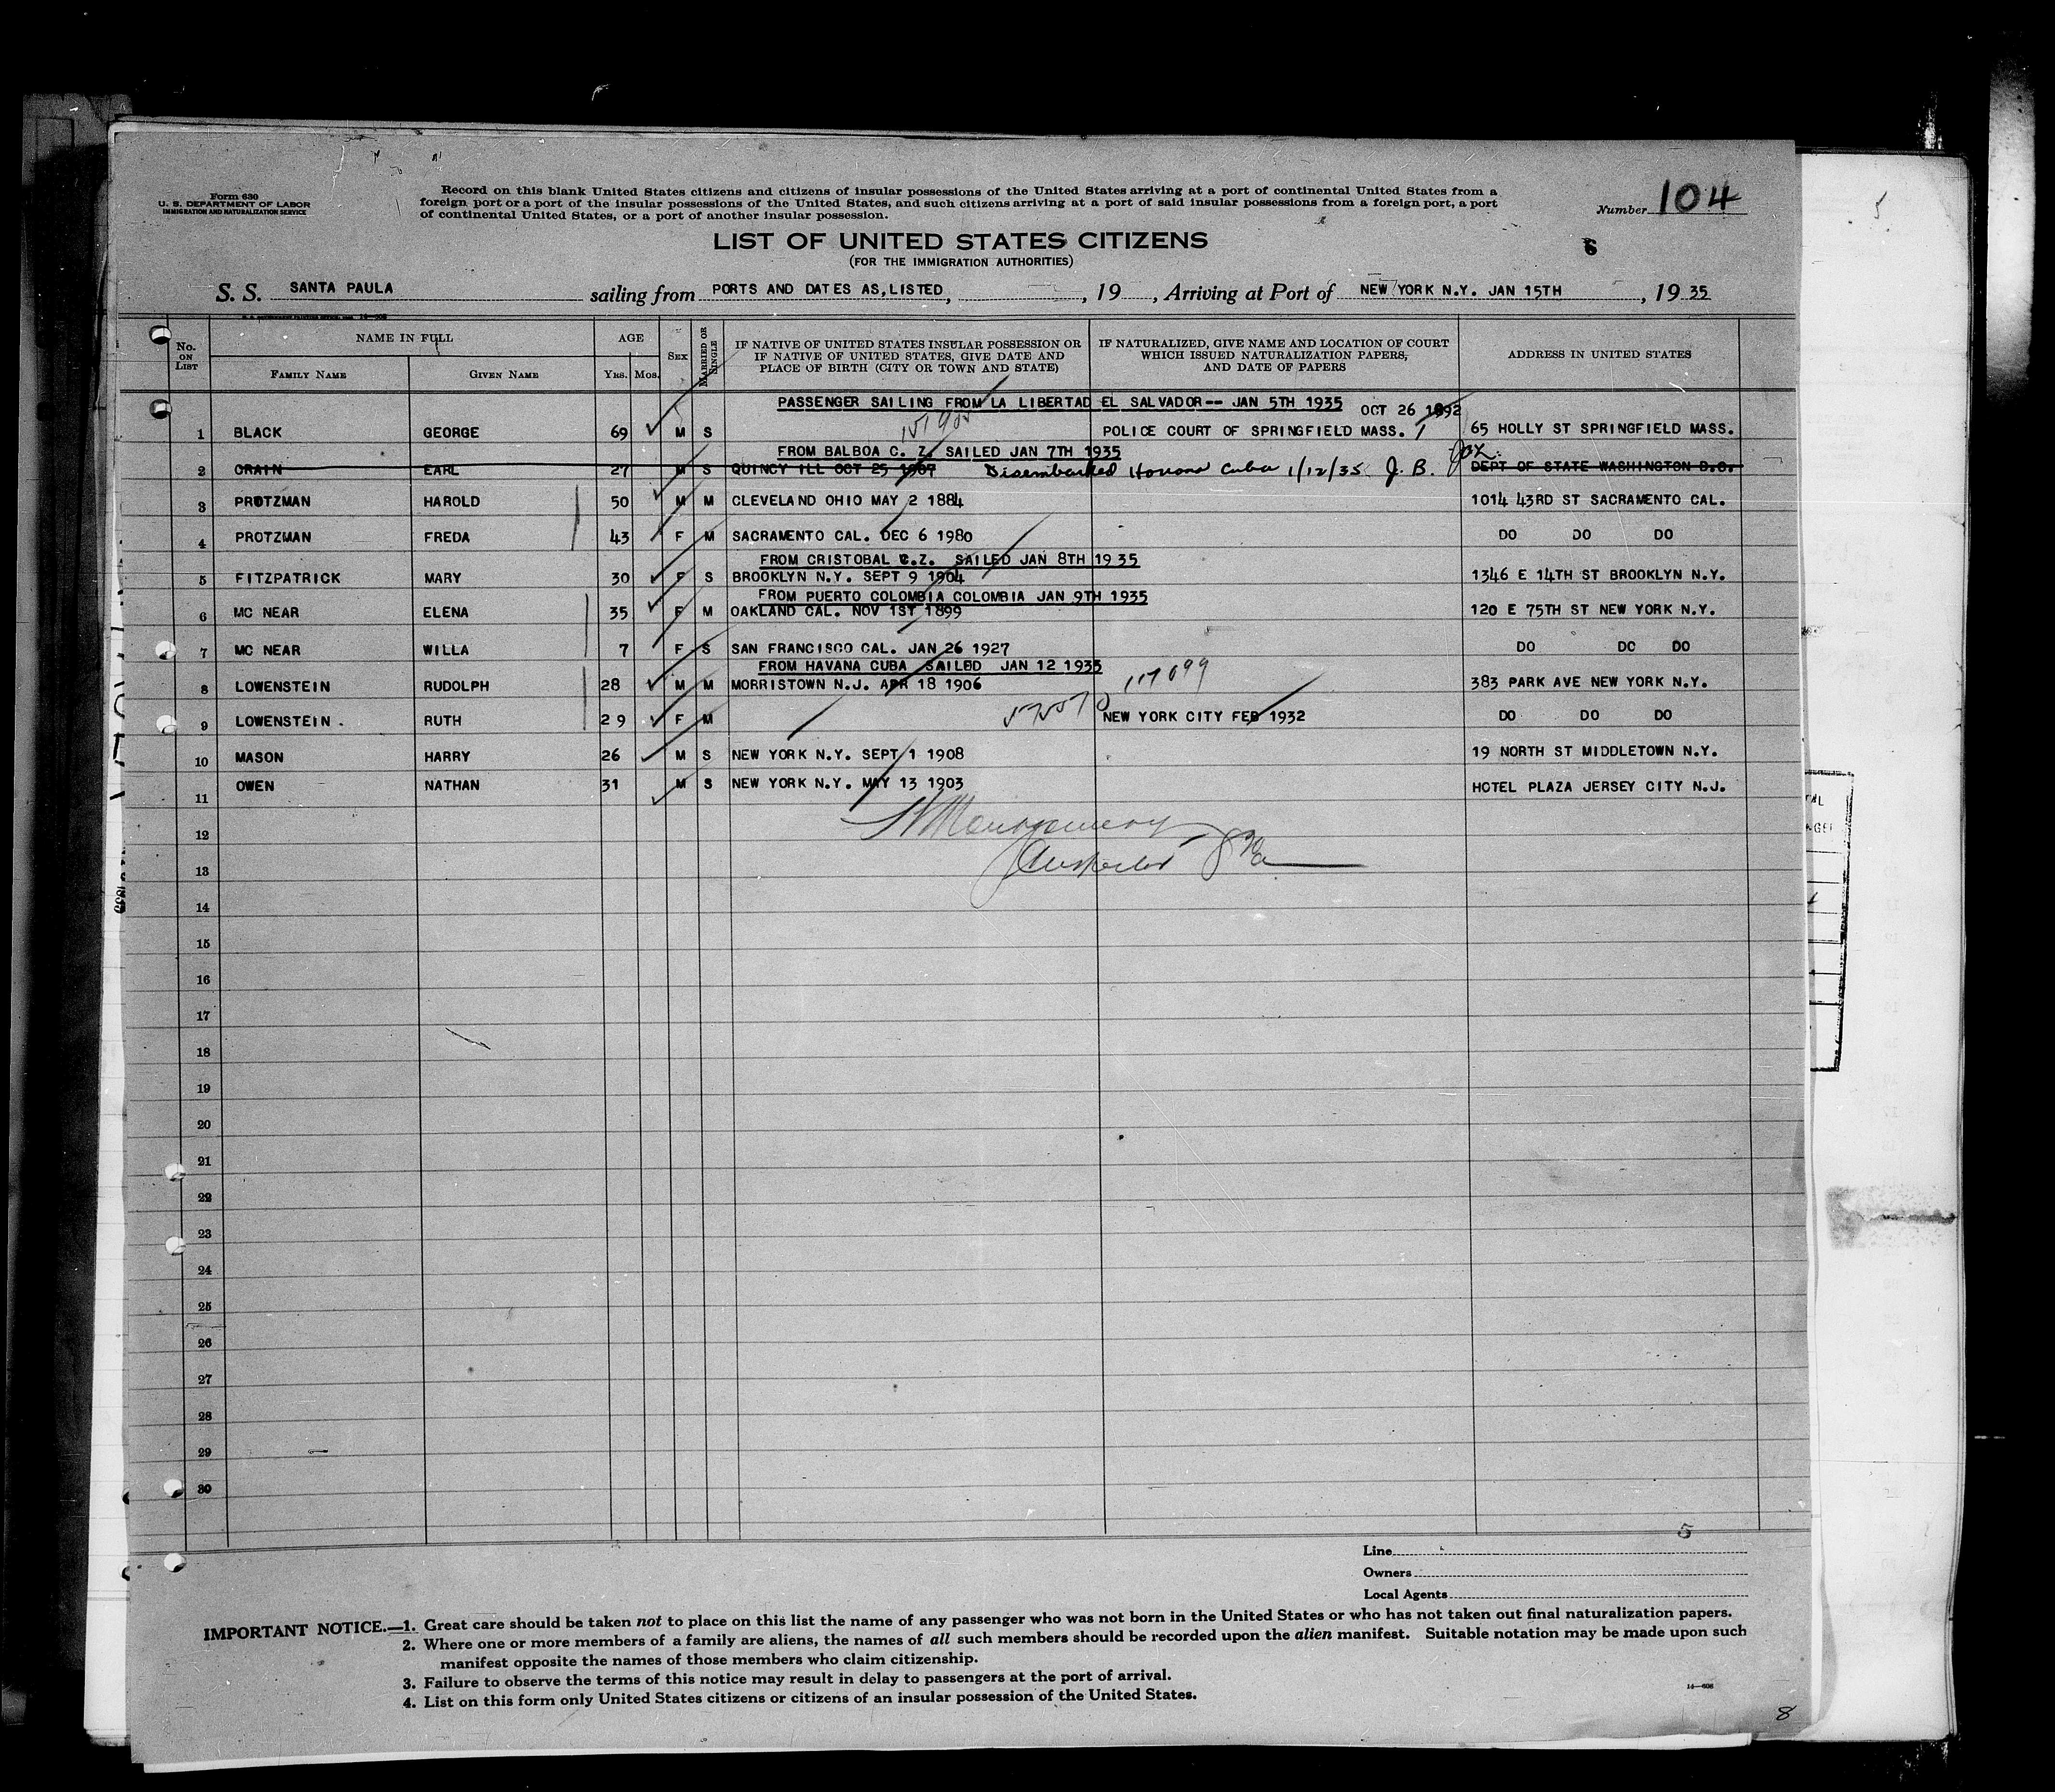 Form 630
U. S. DEPARTMENT OF LABOR
IMMIGRATION AND NATURALIZATION SERVICE
Record on this blank United States citizens and citizens of insular possessions of the United States arriving at a port of continental United States from a
foreign port or a port of the insular possessions of the United States, and such citizens arriving at a port of said insular possessions from a foreign port, a port
of continental United States, or a port of another insular possession.
Number 104
LIST OF UNITED STATES CITIZENS
(FOR THE IMMIGRATION AUTHORITIES)
6
S. S. SANTA PAULA sailing from PORTS AND DATES AS, LISTED, , 19 , Arriving at Port of NEW YORK N.Y. JAN 15TH , 19 35
No. ON LIST
NAME IN FULL
FAMILY NAME
GIVEN NAME
AGE
YRS. MOS.
SEX
MARRIED OR SINGLE
IF NATIVE OF UNITED STATES INSULAR POSSESSION OR
IF NATIVE OF UNITED STATES, GIVE DATE AND
PLACE OF BIRTH (CITY OR TOWN AND STATE)
IF NATURALIZED, GIVE NAME AND LOCATION OF COURT
WHICH ISSUED NATURALIZATION PAPERS,
AND DATE OF PAPERS
ADDRESS IN UNITED STATES
PASSENGER SAILING FROM LA LIBERTAD EL SALVADOR-- JAN 5TH 1935
OCT 26 1892
1 BLACK GEORGE 69 M S POLICE COURT OF SPRINGFIELD MASS. 65 HOLLY ST SPRINGFIELD MASS.
FROM BALBOA C. Z. SAILED JAN 7TH 1935
2 CRAIN EARL 27 M S QUINCY ILL OCT 25 1907 Disembarked Havana Cuba 1/12/35 J. B. DEPT OF STATE WASHINGTON D.C.
3 PROTZMAN HAROLD 50 M M CLEVELAND OHIO MAY 2 1884 1014 43RD ST SACRAMENTO CAL.
4 PROTZMAN FREDA 43 F M SACRAMENTO CAL. DEC 6 1980 DO DO DO
FROM CRISTOBAL C.Z. SAILED JAN 8TH 1935
5 FITZPATRICK MARY 30 F S BROOKLYN N.Y. SEPT 9 1904 1346 E 14TH ST BROOKLYN N.Y.
FROM PUERTO COLOMBIA COLOMBIA JAN 9TH 1935
6 MC NEAR ELENA 35 F M OAKLAND CAL. NOV 1ST 1899 120 E 75TH ST NEW YORK N.Y.
7 MC NEAR WILLA 7 F S SAN FRANCISCO CAL. JAN 26 1927 DO DO DO
FROM HAVANA CUBA SAILED JAN 12 1935
8 LOWENSTEIN RUDOLPH 28 M M MORRISTOWN N.J. APR 18 1906 383 PARK AVE NEW YORK N.Y.
9 LOWENSTEIN RUTH 29 F M NEW YORK CITY FEB 1932 DO DO DO
10 MASON HARRY 26 M S NEW YORK N.Y. SEPT 1 1908 19 NORTH ST MIDDLETOWN N.Y.
11 OWEN NATHAN 31 M S NEW YORK N.Y. MAY 13 1903 HOTEL PLAZA JERSEY CITY N.J.
12
13
14
15
16
17
18
19
20
21
22
23
24
25
26
27
28
29
30
5
Line
Owners
Local Agents
IMPORTANT NOTICE.—1. Great care should be taken not to place on this list the name of any passenger who was not born in the United States or who has not taken out final naturalization papers.
2. Where one or more members of a family are aliens, the names of all such members should be recorded upon the alien manifest. Suitable notation may be made upon such
manifest opposite the names of those members who claim citizenship.
3. Failure to observe the terms of this notice may result in delay to passengers at the port of arrival.
4. List on this form only United States citizens or citizens of an insular possession of the United States.
14—608
8